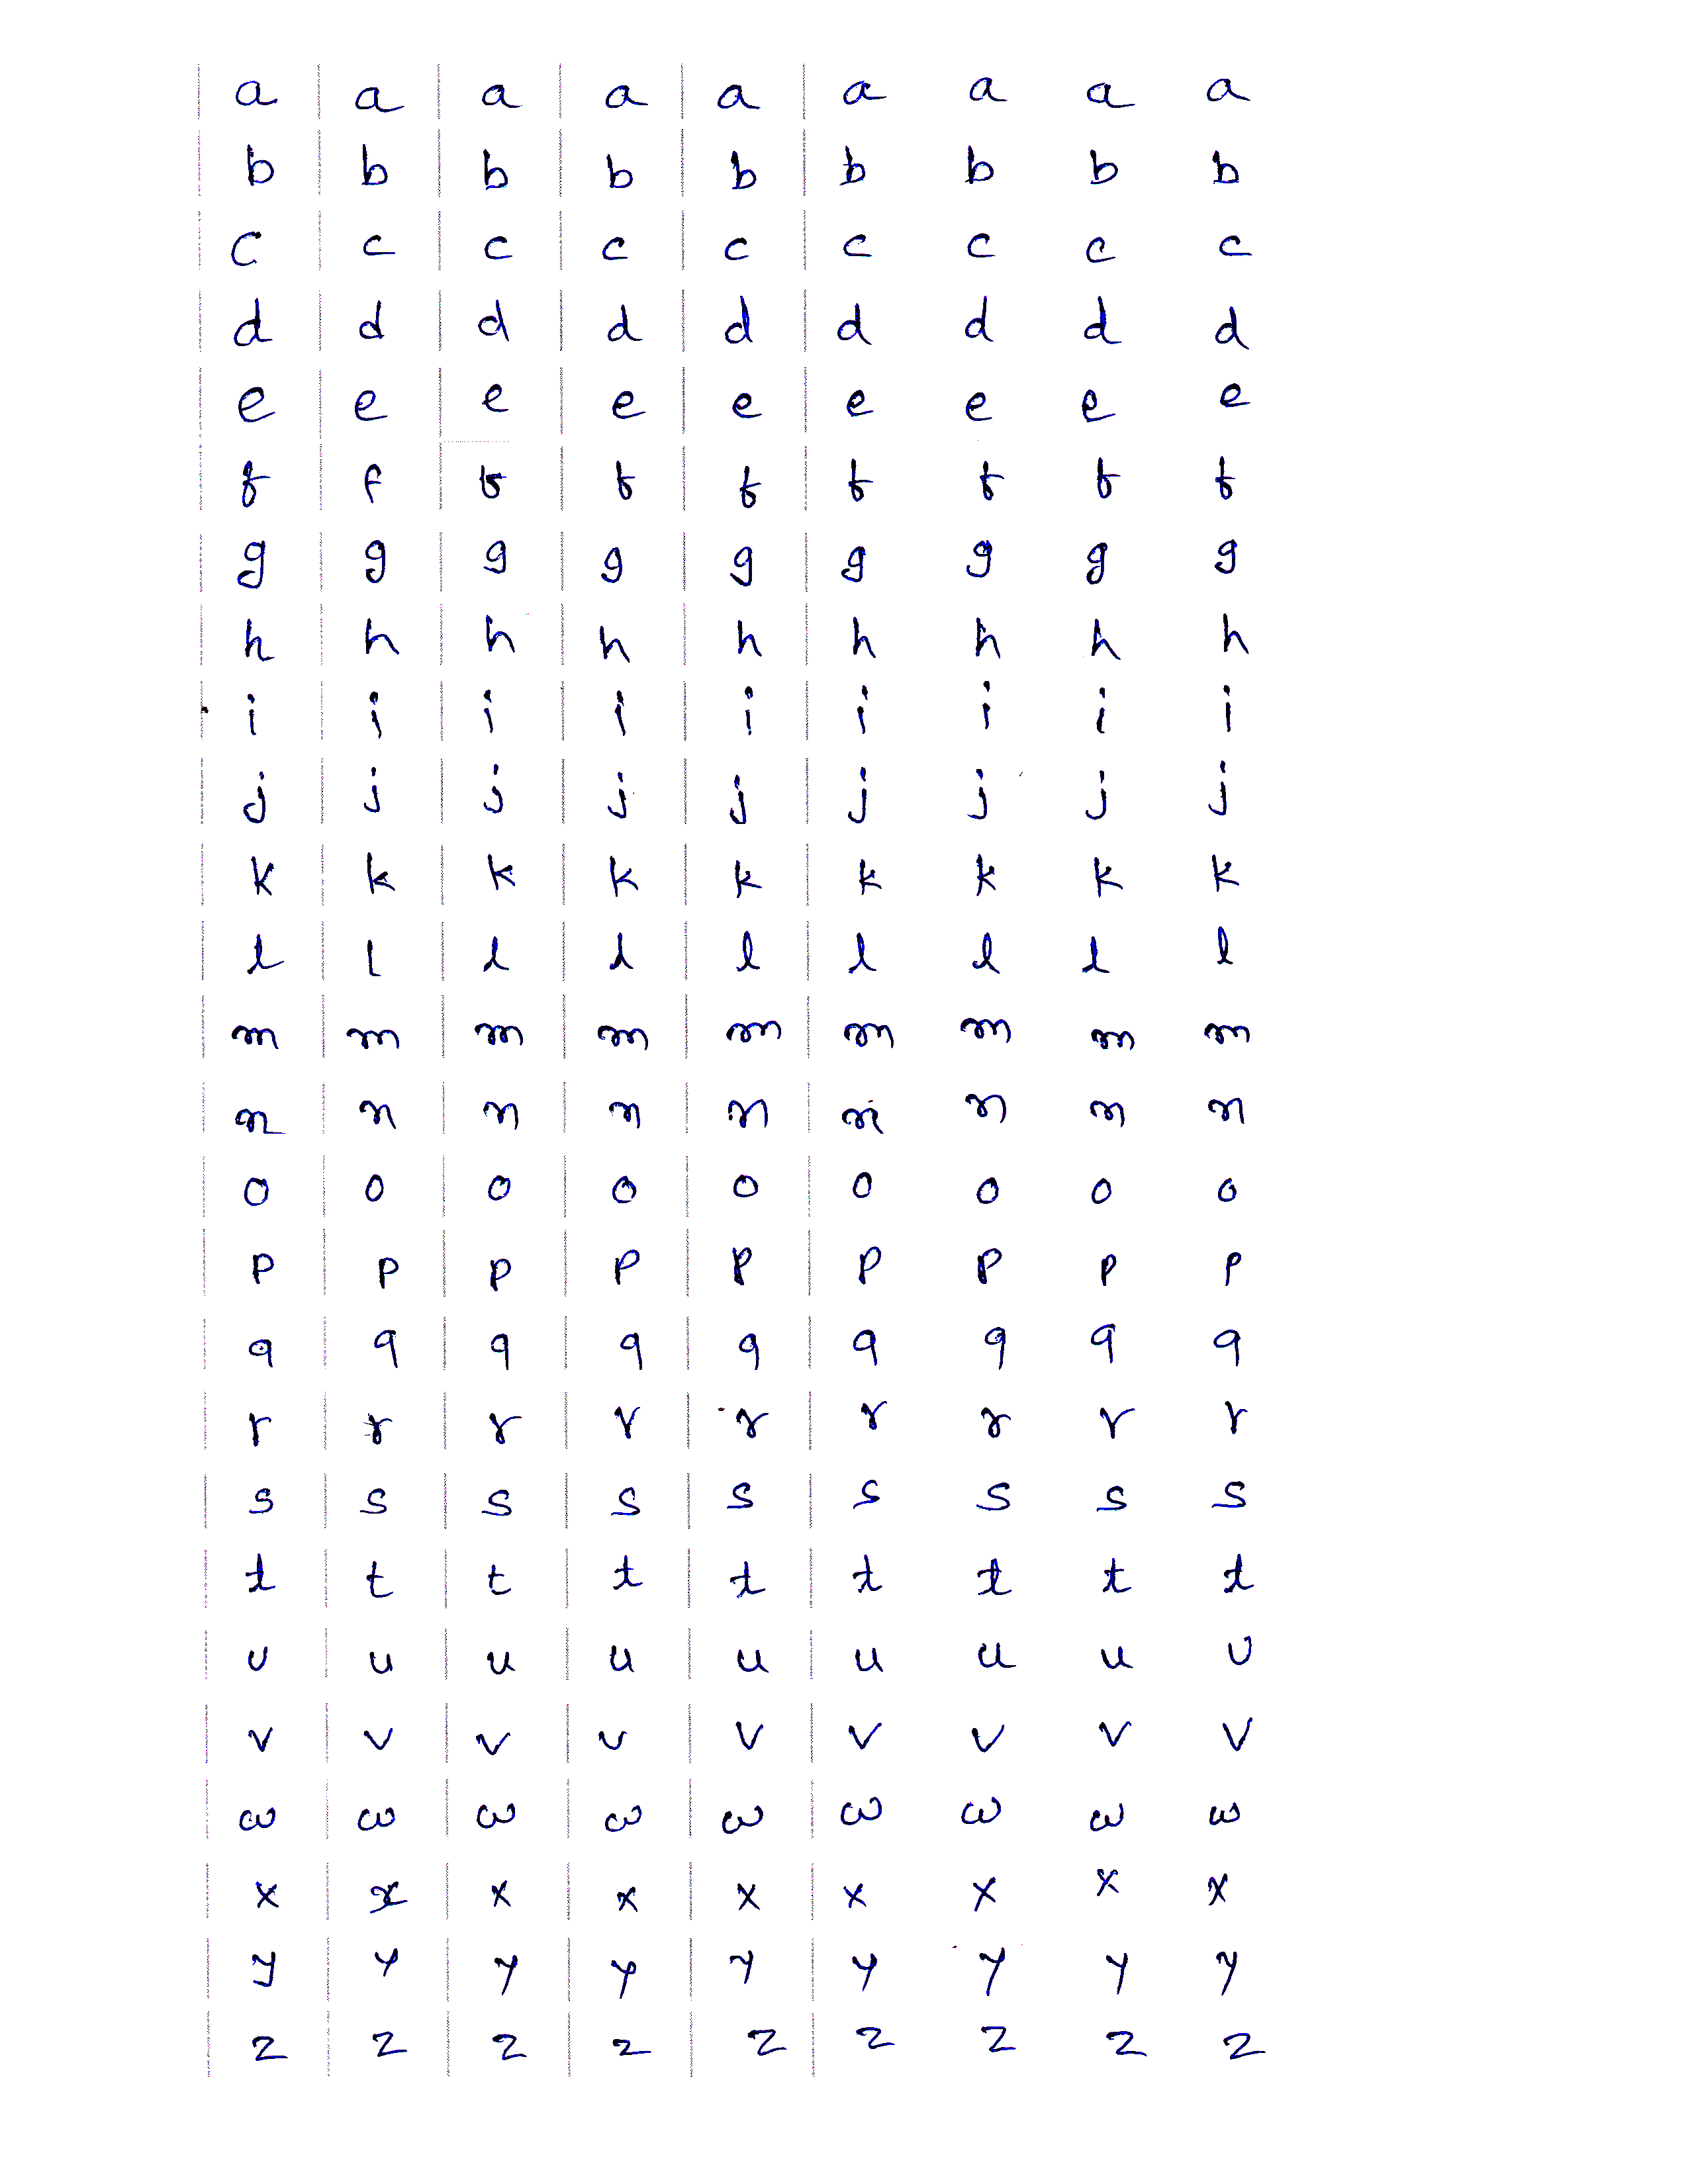 a a a a a a a a a
b b b b b b b b b
c c c c c c c c c
d d d d d d d d d
e e e e e e e e e
f f f f f f f f f
g g g g g g g g g
h h h h h h h h h
i i i i i i i i i
j j j j j j j j j
k k k k k k k k k
l l l l l l l l l
m m m m m m m m m
n n n n n n n n n
o o o o o o o o o
p p p p p p p p p
q q q q q q q q q
r r r r r r r r r
s s s s s s s s s
t t t t t t t t t
u u u u u u u u u
v v v v v v v v v
w w w w w w w w w
x x x x x x x x x
y y y y y y y y y
z z z z z z z z z